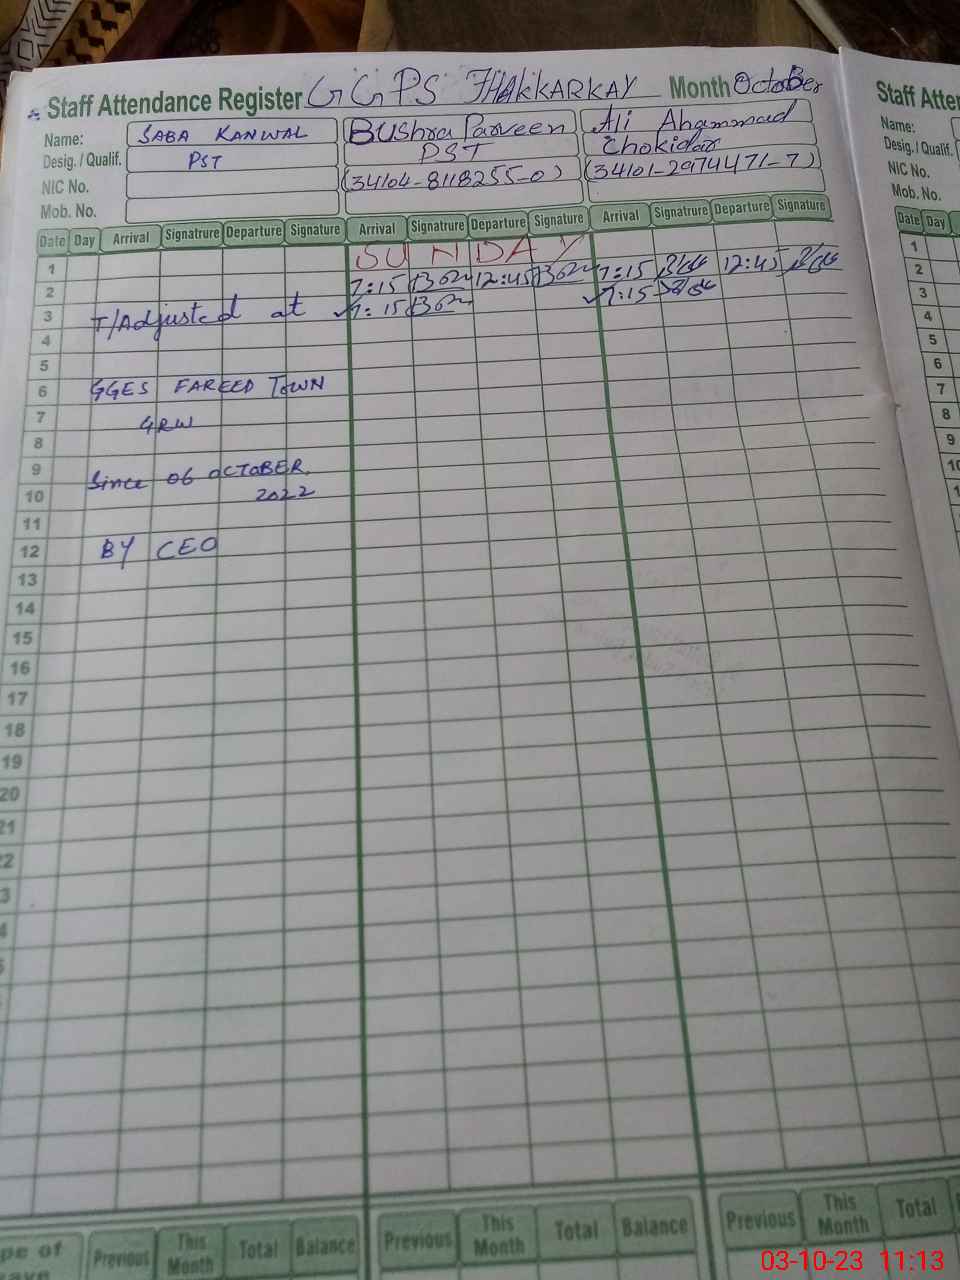 Staff Attendance Register GGPS THAKKARKAY Month October
Name: SABA KANWAL Bushra Parveen Ali Ahammad
Desig. / Qualif. PST PST Chokidar
NIC No. (34104-8118255-0) (34101-2974471-7)
Mob. No.
Date Day Arrival Signatrure Departure Signature Arrival Signatrure Departure Signature Arrival Signatrure Departure Signature
1 SUNDAY
2 7:15 12:45 7:15 12:45
3 T/Adjusted at 7:15 7:15
4
5
6 GGES FAREED TOWN
7 GRW
8
9 Since 06 OCTOBER
10 2022
11
12 BY CEO
13
14
15
16
17
18
19
20
21
Previous This Month Total Balance Previous This Month Total Balance Previous This Month Total
Staff Atten
Name:
Desig. / Qualif.
NIC No.
Mob. No.
Date Day
1
2
3
4
5
6
7
8
9
03-10-23 11:13